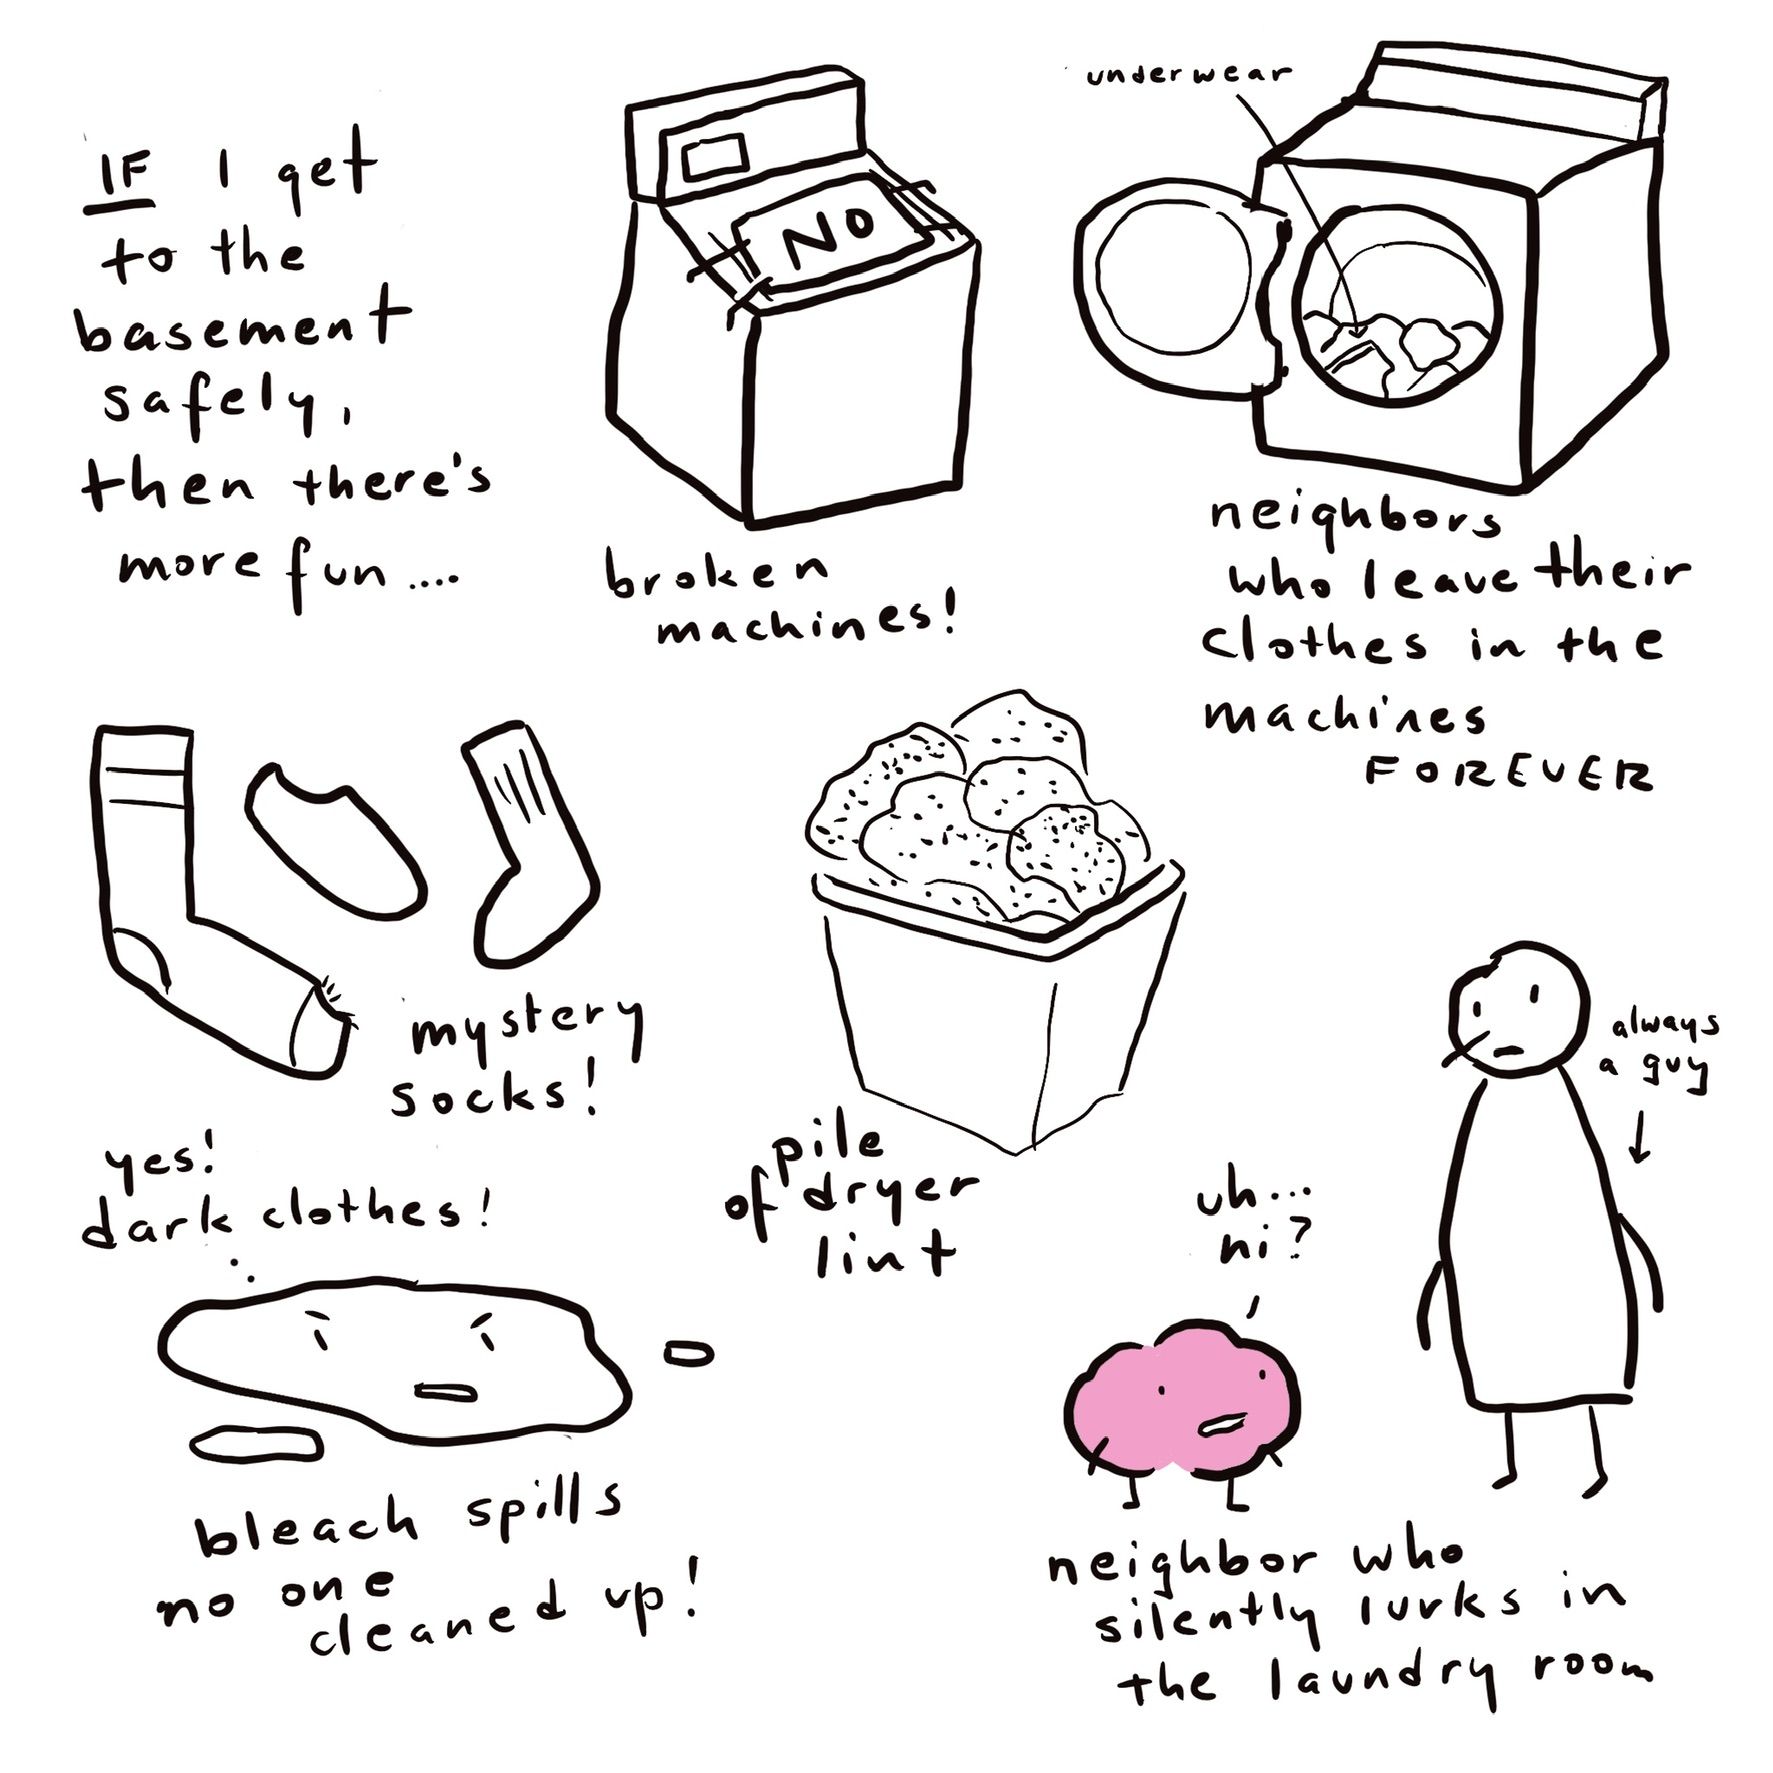 IF I get
to the
basement
safely,
then there's
more fun....
NO
broken
machines!
underwear
neighbors
who leave their
clothes in the
machines
FOREVER
mystery
socks!
pile
of dryer
lint
yes!
dark clothes!
bleach spills
no one
cleaned up!
always
a guy
uh...
hi?
neighbor who
silently lurks in
the laundry room